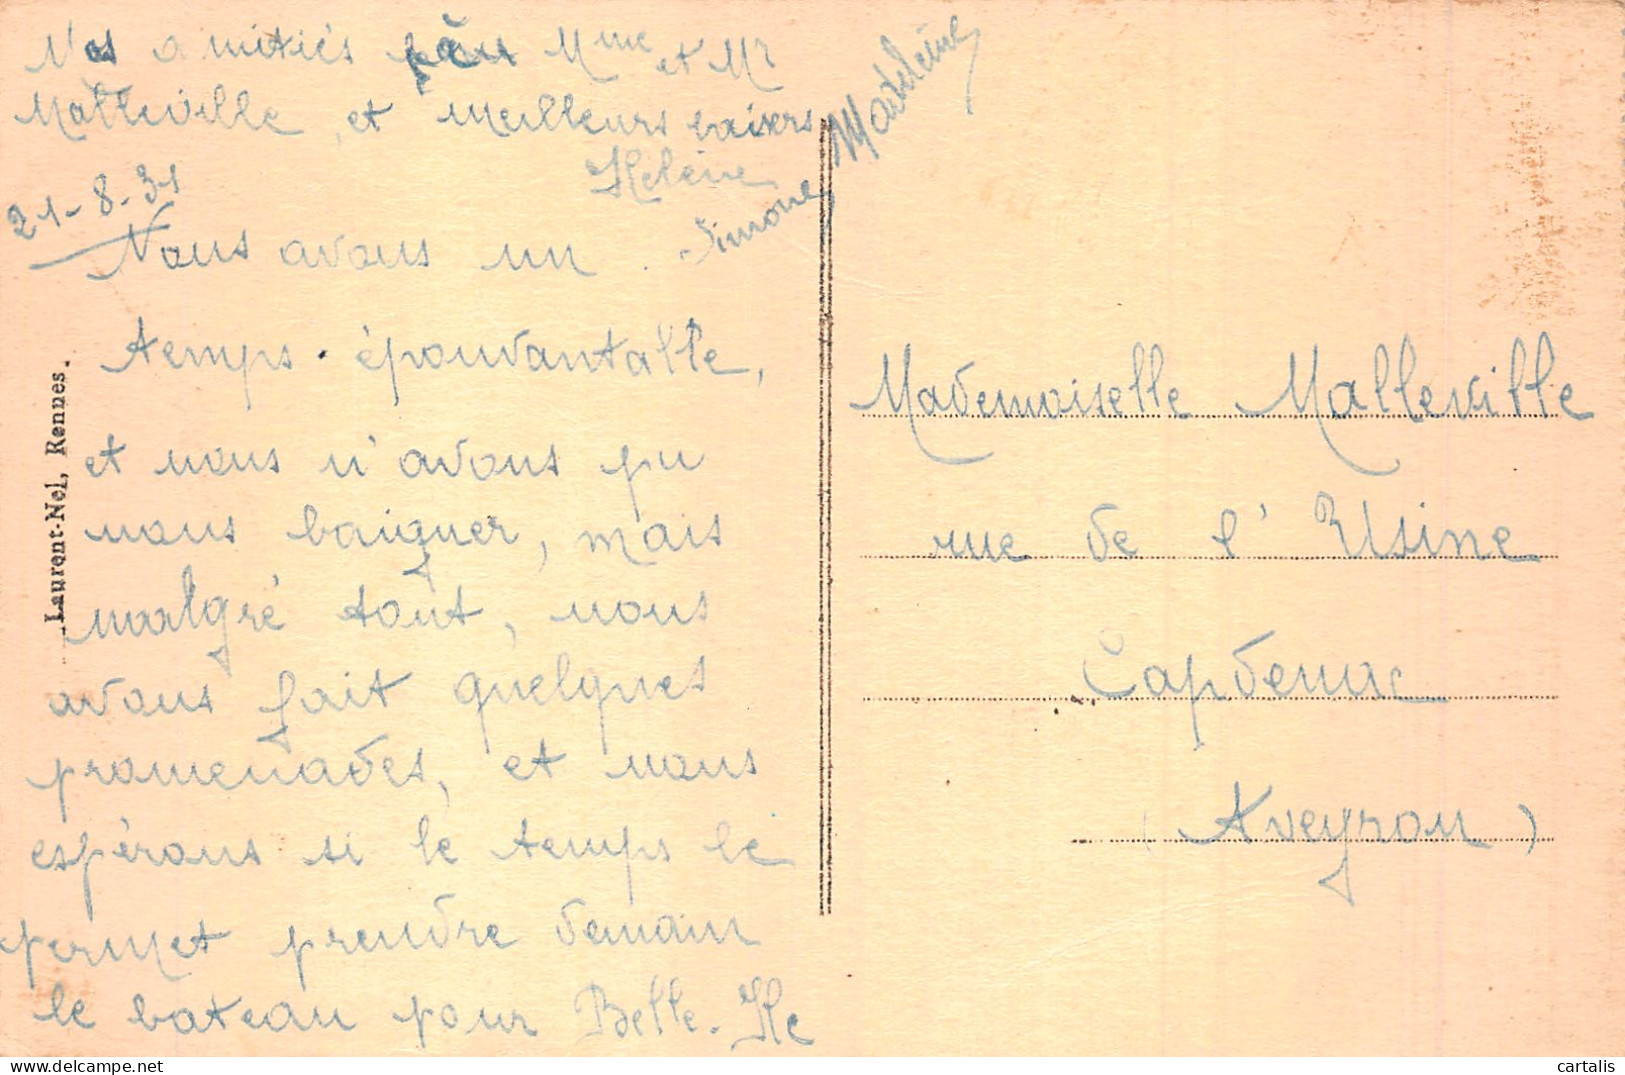 Nos amitiés pour Mme et Mr
Malleville, et meilleurs baisers
Helene
Simone, Madeleine
21-8-31
Nous avons un
temps épouvantable,
et nous n'avons pu
nous baigner, mais
malgré tout, nous
avons fait quelques
promenades, et nous
espérons si le temps le
permet prendre demain
le bateau pour Belle-Ile
Laurent-Nel, Rennes.
Mademoiselle Malleville
rue de l'Usine
Capdenac
(Aveyron)
cartalis